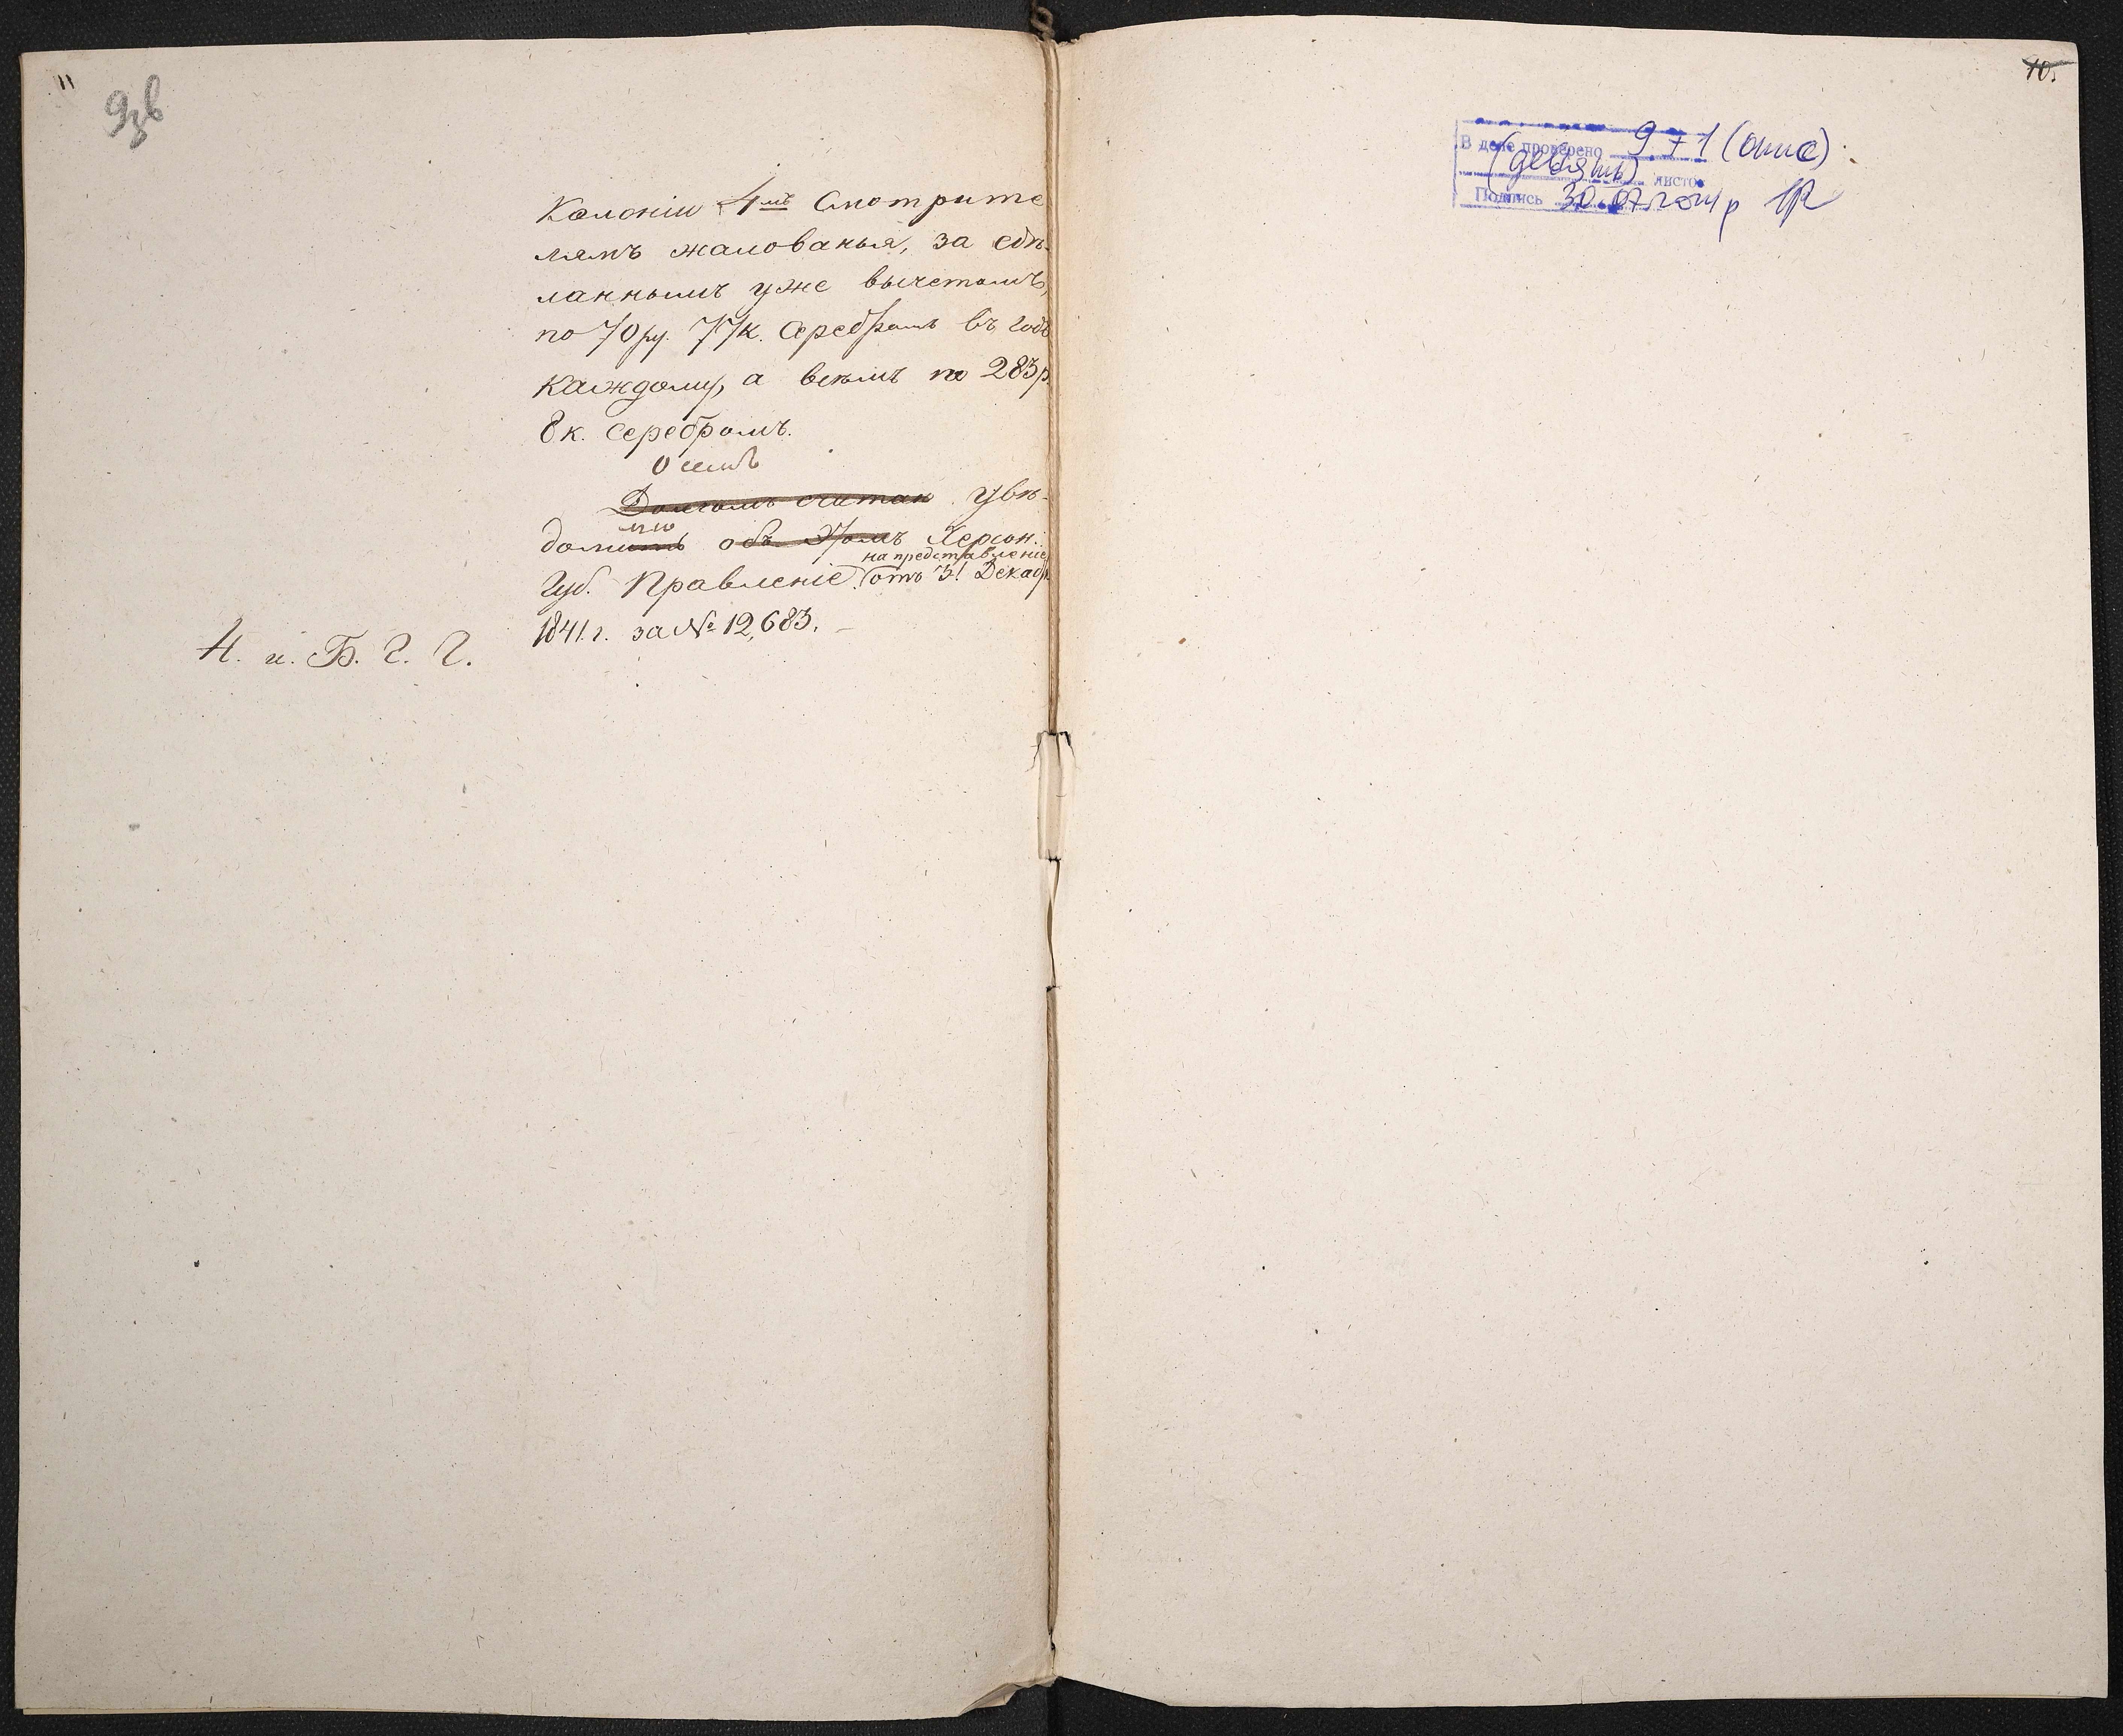 11
9зв
Колоніи 4мъ Смотрите
лямъ жалованья, за сдѣ-
ланнымъ уже вычетомъ,
по 70 ру. 77 к. серебромъ въ годъ
каждому, а всѣмъ по 283 р.
8 к. серебромъ.
О семъ
Долгомъ считаю увѣ-
мляю
домить объ этомъ Херсон.
на представленіе
Губ. Правленіе отъ 31 Декабр.
1841 г. за № 12,683. –
Н. и. Б. Г. Г.
10.
В деле проверено 9 + 1 (опис)
(девять) листов
Подпись 30.07.2024 р